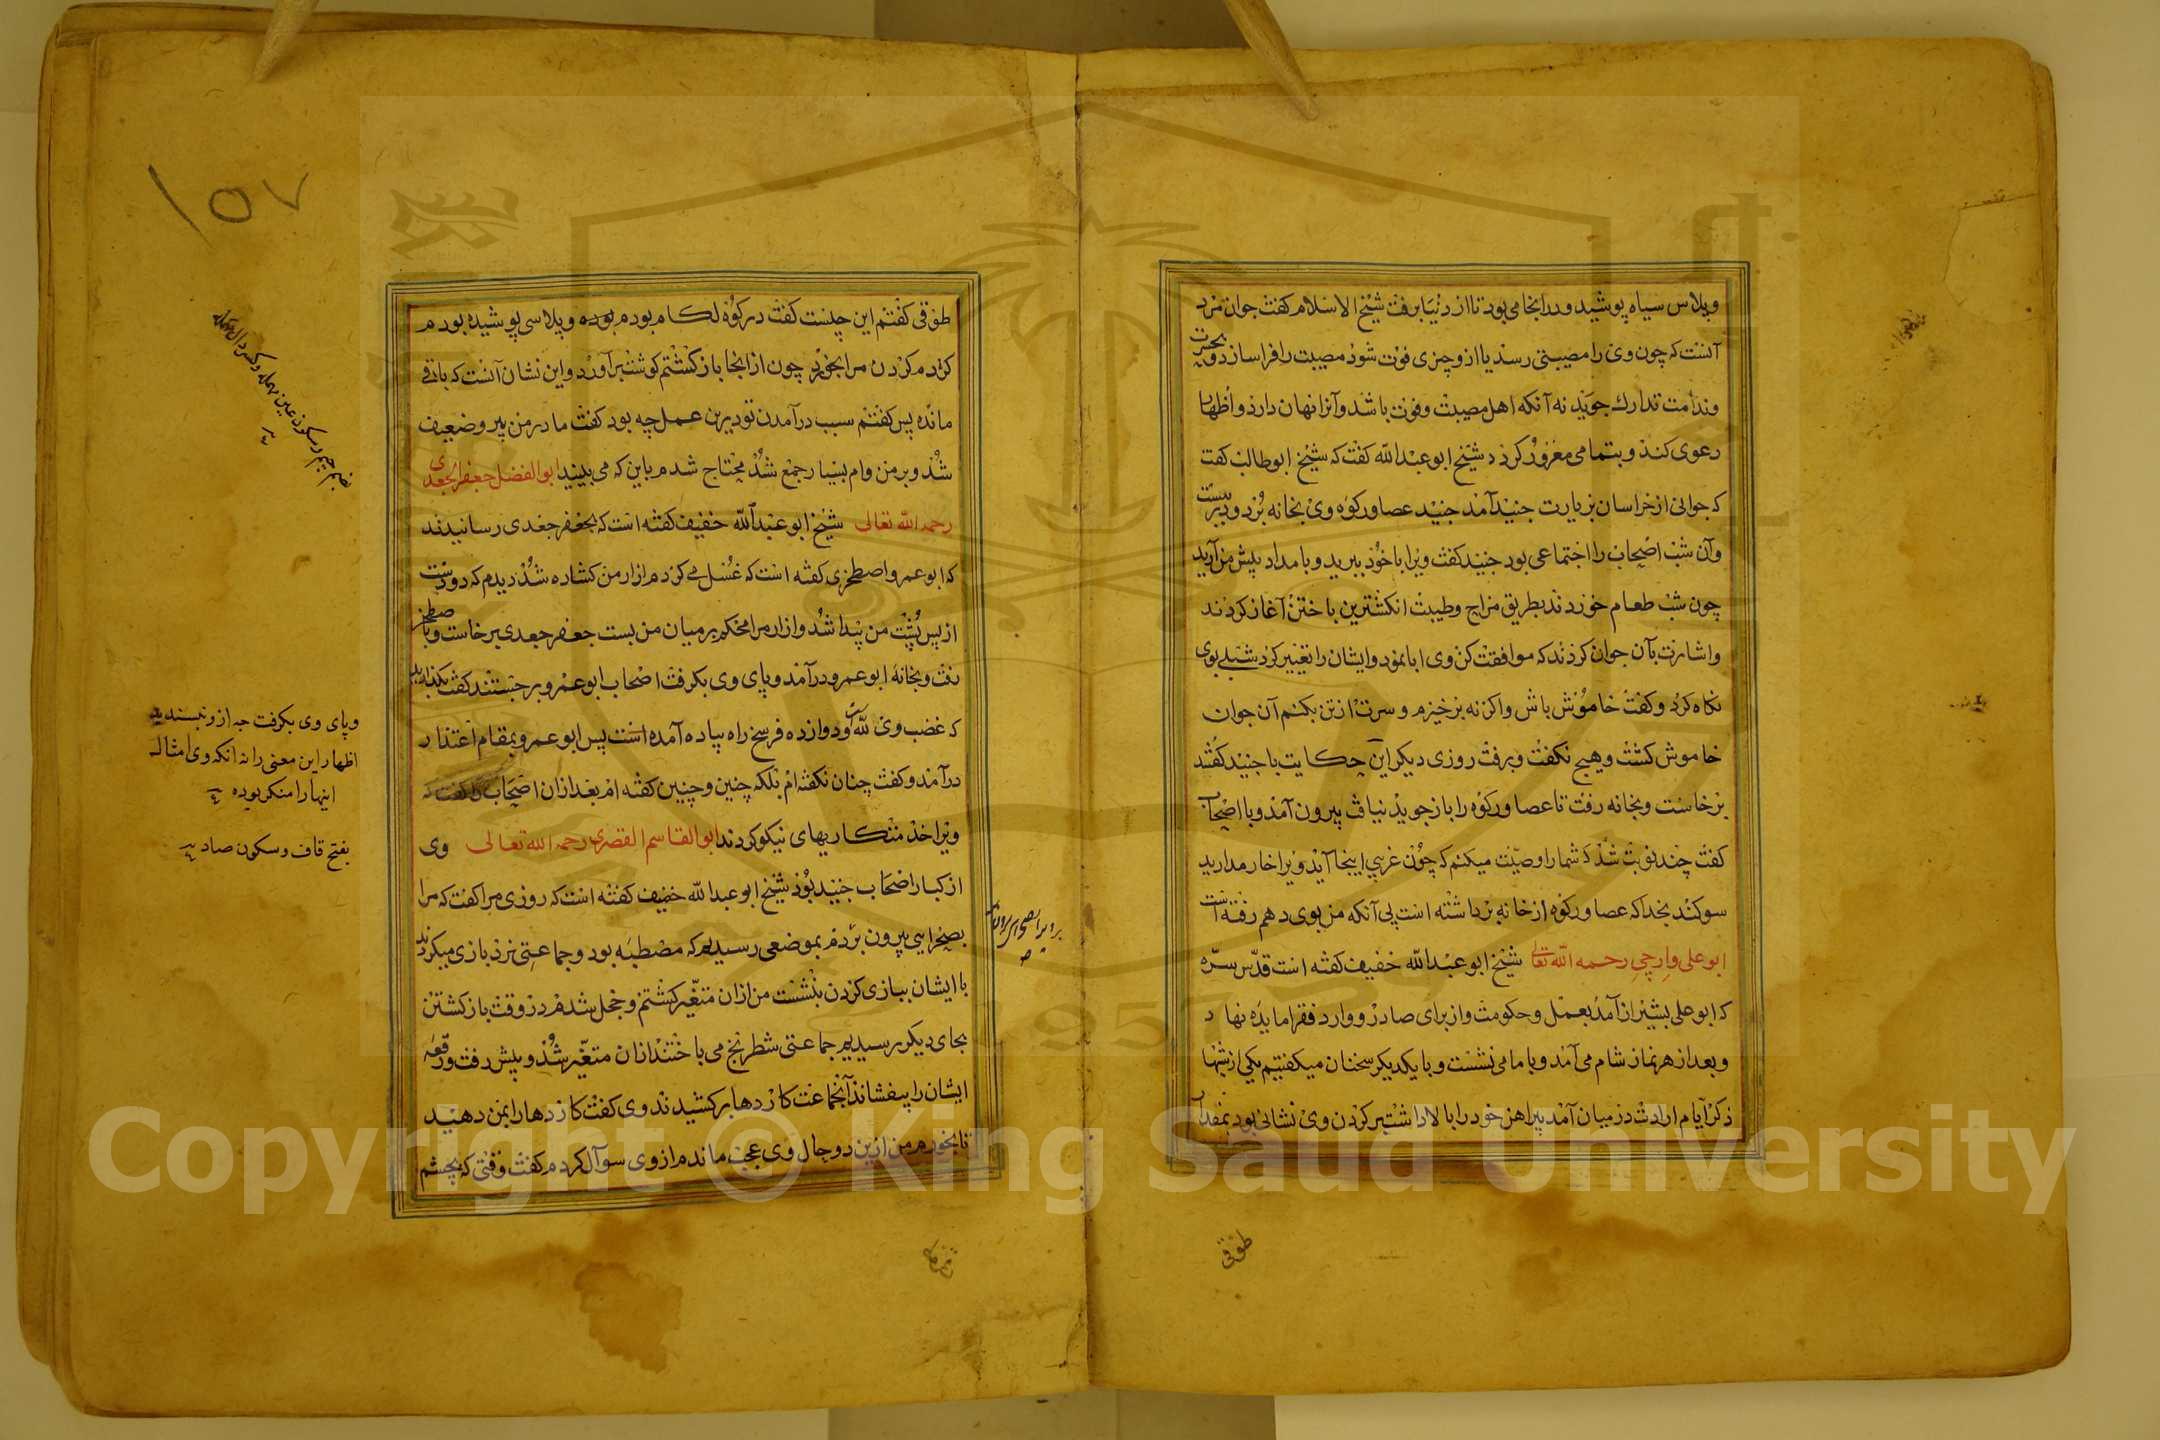 وپلاس سیاه پوشید ودرانجا می بود تا از دنیا برفت شیخ الاسلام کفت جوان مرد
آنست که چون وی را مصیبتی رسد یا ازو چیزی فوت شود مصیبت را فرا سازد وبحسرت
وندامت تدارک جوید نه آنکه اهل مصیبت وفوت باشد وآنرا نهان دارد واظهار
دعوی کند وبتمامی مغرور کردد شیخ ابو عبد الله کفت که شیخ ابوطالب کفت
که جوانی از خراسان بزیارت جنید آمد جنید عصا ورکوه وی بخانه برد ودر بست
وآن شب اصحاب را اجتماعی بود جنید کفت ویرا با خود ببرید وبامداد پیش من آرید
چون شب طعام خوردند بطریق مزاح وطیبت انکشترین باختن آغاز کردند
واشارت بآن جوان کردند که موافقت کن وی ابا نمود وایشان را تغییر کرد شبلی بوی
نکاه کرد وکفت خاموش باش واکر نه برخیزم وسرت از تن بکنم آن جوان
خاموش کشت وهیچ نکفت وبرفت روزی دیکر این حکایت با جنید کفتند
برخاست وبخانه رفت تا عصا ورکوه را باز جوید نیافت بیرون آمد وبا اصحاب
کفت چند نوبت شد که شما را وصیت میکنم که چون غریبی اینجا آید ویرا خار مدارید
سوکند بخدا که عصا ورکوه از خانه برداشته است بی آنکه من بوی دهم رفته است
ابو علی وارجی رحمه الله تعالی شیخ ابو عبد الله خفیف کفته است قدس سره
که ابو علی بشیراز آمد بعمل وحکومت واز برای صادر ووارد فقرا مایده نهاد
وبعد از هر نماز شام می آمد وبا ما می نشست وبا یکدیکر سخنان میکفتیم یکی از شبها
ذکر ایام ارادت در میان آمد پیراهن خود را بالا داشت بر کردن وی نشانی بود بمقدار
طوقی
طوقی کفتم این چیست کفت در کوه لکام بودم بوده وپلاسی پوشیده بودم
کردم کردن مرا بخورد چون از انجا باز کشتم کوشت بر آورد واین نشان آنست که باقی
مانده پس کفتم سبب در آمدن تو درین عمل چه بود کفت مادر من پیر وضعیف
شد وبر من وام بسیار جمع شد محتاج شدم باین که می بینید ابو الفضل جعفر الجعدی
رحمه الله تعالی شیخ ابو عبد الله خفیف کفته است که بجعفر جعدی رسانیدند
که ابو عمرو اصطخری کفته است که غسل می کردم ازار من کشاده شد دیدم که دو دست
از پس پشت من پیدا شد وازار مرا محکم بر میان من بست جعفر جعدی برخاست وباصطخر
رفت وبخانه ابو عمرو در آمد وپای وی بکرفت اصحاب ابو عمرو برجستند کفت بکذارید
که غضب وی لله بود ودوازده فرسخ راه پیاده آمده است پس ابو عمرو بمقام اعتذار
در آمد وکفت چنان نکفته ام بلکه چنین وچنین کفته ام بعد ازان اصحاب را کفت که
ویرا خدمتکاریهای نیکو کردند ابو القاسم القصری رحمه الله تعالی وی
از کبار اصحاب جنید بود شیخ ابو عبد الله خفیف کفته است که روزی مرا کفت که مرا
بصحرایی بیرون بردم بموضعی رسیدیم که مصطبه بود وجماعتی نرد بازی میکردند
با ایشان ببازی کردن بنشست من ازان متغیر کشتم وخجل شدم در وقت باز کشتن
بجای دیکر رسیدیم جماعتی شطرنج می باختند ازان متغیر شد وپیش رفت ورقعه
ایشان را بیفشاند آنجماعت کاردها بر کشیدند وی کفت کاردها را بمن دهید
تا بخورم من ازین دو حال وی عجب ماندم از وی سوال کردم کفت وقتی که بچشم
۱۵۷
بضم جیم وسکون عین مهمله وکسر دال مهمله
وپای وی بکرفت چه ازو نپسندید
اظهار این معنی را نه آنکه وی امثال
اینها را منکر بوده
بفتح قاف وسکون صاد
Copyright © King Saud University